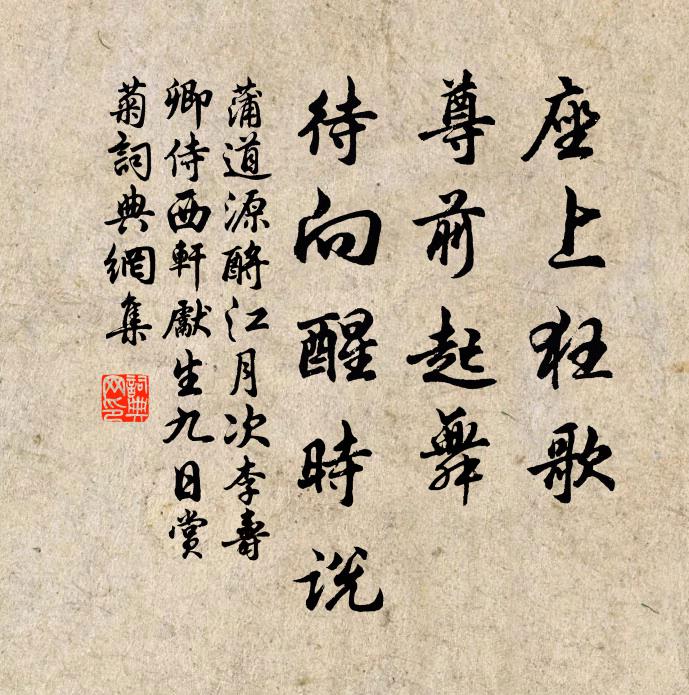 座上狂歌
尊前起舞
待向醒時說
蒲道源酹江月次李壽
卿侍西軒獻生九日賞
菊詞典網集
詞典
网印